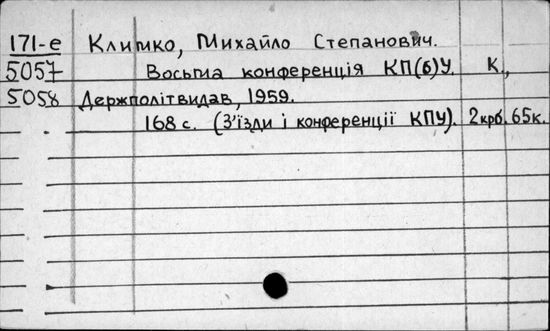 171-е Климко, Михайло Степанович.
5057 Восьма конференція КП(б)У. К.,
5058 Держполітвидав, 1959.
168 с. (З'їзди і конференції КПУ). 2 крб. 65 к.